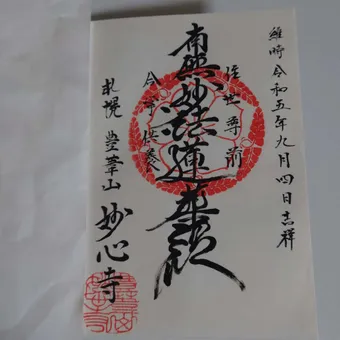 維時令和五年九月四日吉祥
佐世尊前
南無妙法蓮華経
合掌供養
札幌 豊葦山 妙心寺